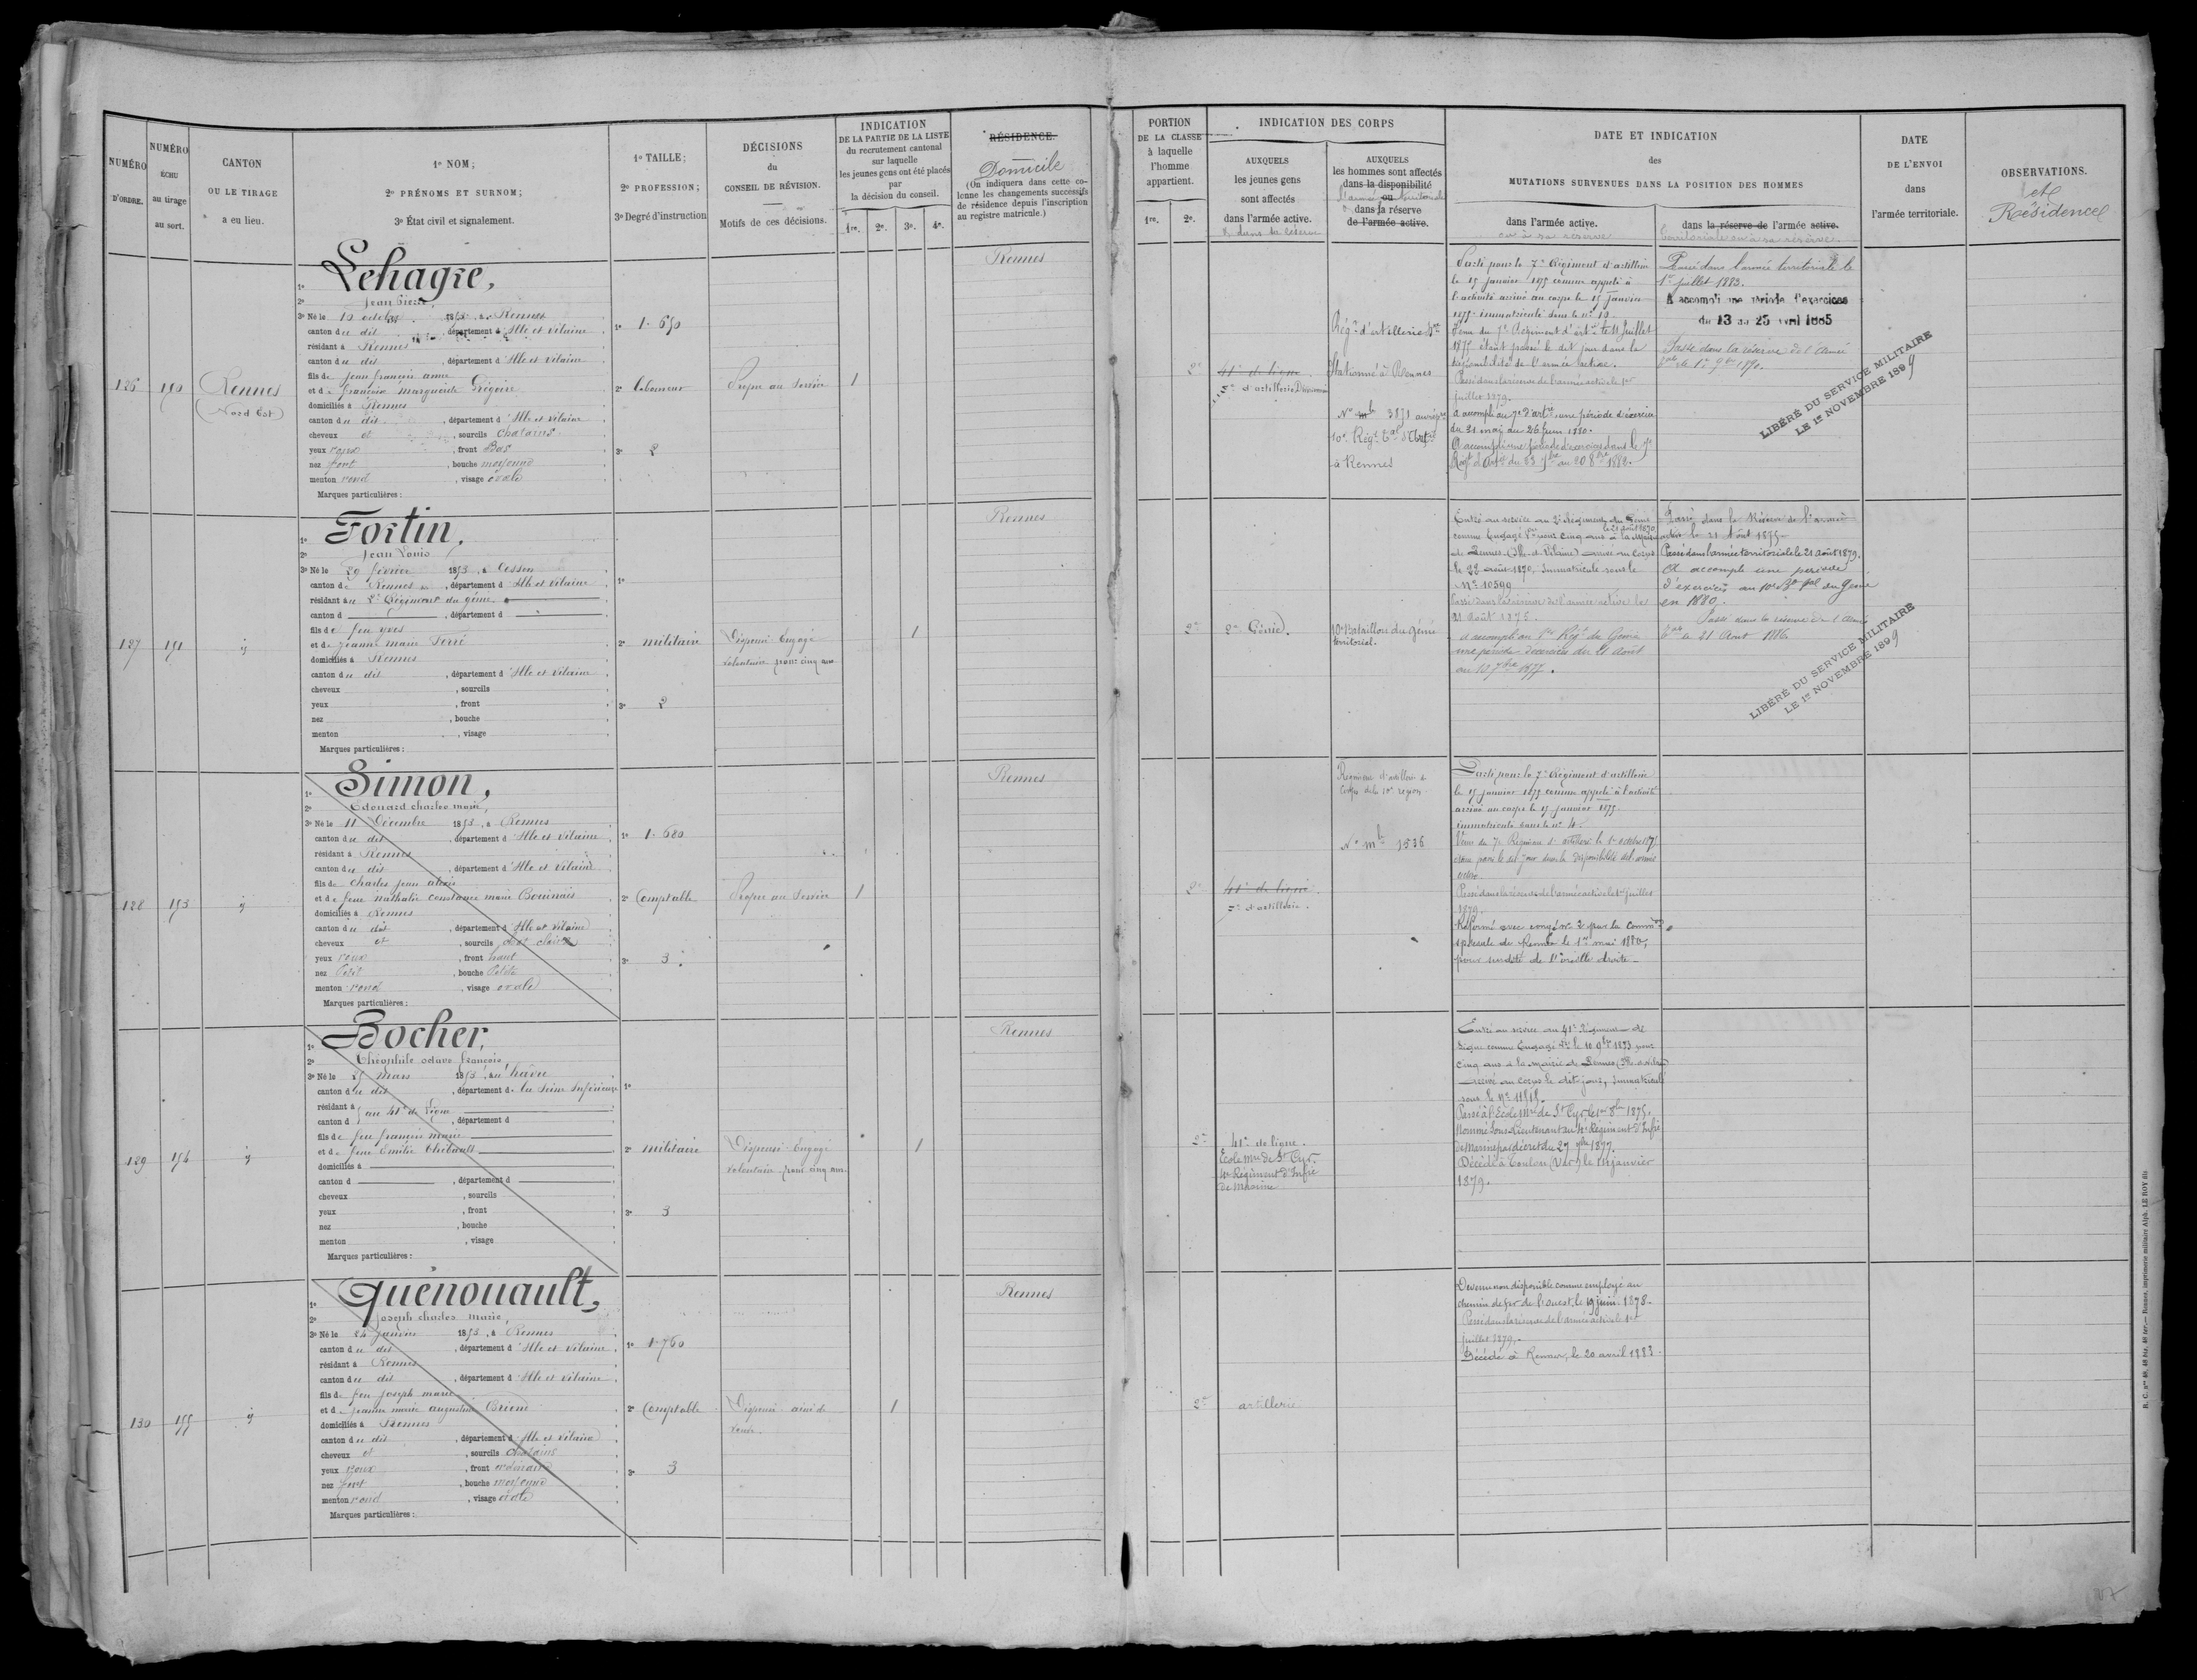 NUMÉRO D'ORDRE.
NUMÉRO ÉCHU au tirage au sort.
CANTON OU LE TIRAGE a eu lieu.
1º NOM;
2º PRÉNOMS ET SURNOM;
3º État civil et signalement.
1º TAILLE;
2º PROFESSION;
3º Degré d'instruction
DÉCISIONS du CONSEIL DE RÉVISION.
Motifs de ces décisions.
INDICATION
DE LA PARTIE DE LA LISTE
du recrutement cantonal
sur laquelle
les jeunes gens ont été placés
par
la décision du conseil.
1re. 2e. 3e. 4e.
RÉSIDENCE.
Domicile
(On indiquera dans cette co-
lonne les changements successifs
de résidence depuis l'inscription
au registre matricule.)
PORTION
DE LA CLASSE
à laquelle
l'homme
appartient.
1re. 2e.
INDICATION DES CORPS
AUXQUELS
les jeunes gens
sont affectés
dans l'armée active.
& dans sa réserve
AUXQUELS
les hommes sont affectés
dans la disponibilité
ou
dans la réserve
de l'armée active.
DATE ET INDICATION
des
MUTATIONS SURVENUES DANS LA POSITION DES HOMMES
dans l'armée active.
ou à sa réserve
dans la réserve de l'armée active.
territoriale ou à sa réserve
DATE
DE L'ENVOI
dans
l'armée territoriale.
OBSERVATIONS.
et
Résidence
126
190
Rennes
(Nord Est)
Lehagre,
2º Jean Pierre,
3º Né le 10 octobre 1853, à Rennes
canton du dit, département d'Ille et Vilaine
résidant à Rennes
canton du dit, département d'Ille et Vilaine
fils de Jean françois anne
et de françoise marguerite Grégoire
domiciliés à Rennes
canton du dit, département d'Ille et Vilaine
cheveux et, sourcils Chatains
yeux roux, front Bas
nez fort, bouche moyenne
menton rond, visage ovale
Marques particulières:
1º 1.650
2º laboureur
3º 2
Propre au Service
1
Rennes
2e
41e de ligne
Régt d'artillerie
Stationné à Rennes
Nº 3871 au rép.
10e Régt
à Rennes
Parti pour le 7e Régiment d'artillerie
le 15 janvier 1875 comme appelé à
l'activité arrivé au corps le 15 janvier
1875 immatriculé sous le nº 10
1875 étant passé le dit jour dans la
disponibilité de l'armée active.
Passé dans la réserve de l'armée active le 1er
juillet 1879.
A accompli au 7e d'artie une période d'exercice
du 31 mai au 26 juin 1880.
A accompli une période d'exercices dans le 7e
Regt d'Artie du 23 7bre au 20 8bre 1882.
Passé dans l'armée territoriale le
1er juillet 1883.
A accompli une période d'exercices
du 13 au 25 avril 1885
Passé dans la réserve de l'armée
LIBÉRÉ DU SERVICE MILITAIRE
LE 1er NOVEMBRE 1899
127
191
Fortin,
2º Jean Louis
3º Né le 29 février 1853, à Cesson
canton de Rennes, département d'Ille et Vilaine
résidant au 2e Régiment du génie
canton d, département d
fils de feu yves
et de jeanne marie Ferré
domiciliés à Rennes
canton du dit, département d'Ille et Vilaine
cheveux, sourcils
yeux, front
nez, bouche
menton, visage
Marques particulières:
2º militaire
3º 2
Dispensé Engagé
volontaire pour cinq ans
1
Rennes
2e
2e Génie.
10e Bataillon du génie
territorial.
Entré au service au 2e Régiment du Génie
le 21 août 1870
comme Engagé Vre pour cinq ans à la Mairie
de Rennes (Ille-et-Vilaine) arrivé au Corps
le 22 août 1870, Immatriculé sous le
Nº 10599
Passé dans la réserve de l'armée active le
21 août 1875.
A accompli au 1er Régt du Génie
une période d'exercices du 21 août
au 17 7bre 1877.
Passé dans la Réserve de l'armée
active le 21 Août 1875
Passé dans l'armée territoriale le 21 août 1879.
A accompli une période
d'exercices au 10e Bon Pal du Génie
en 1880.
Passé dans la réserve de l'armée
le 21 Aout 1886
LIBÉRÉ DU SERVICE MILITAIRE
LE 1er NOVEMBRE 1899
128
193
Simon,
2º Edouard charles marie,
3º Né le 11 Décembre 1853, à Rennes
canton du dit, département d'Ille et Vilaine
résidant à Rennes
canton du dit, département d'Ille et Vilaine
fils de Charles jean alexis
et de feue nathalie constance marie Bouinais
domiciliés à Rennes
canton du dit, département d'Ille et Vilaine
cheveux et, sourcils
yeux roux, front haut
nez Petit, bouche Petite
menton rond, visage ovale
Marques particulières:
1º 1.680
2º Comptable
3º 3
Propre au Service
1
Rennes
2e
41e de ligne
7e d'artillerie.
Régiment d'artillerie
Corps de la 10e région
Nº mle 1536
Parti pour le 7e Régiment d'artillerie
le 15 janvier 1875 comme appelé à l'activité
arrivé au corps le 15 janvier 1875
immatriculé sous le nº 4
Passé dans la réserve de l'armée active le 1er juillet
1879.
Réformé avec congé nº 2 par la Common
spéciale de Rennes le 1er mai 1880,
pour surdité de l'oreille droite
129
194
Bocher,
2º Théophile octave françois,
3º Né le 25 mars 1853, au hâvre
canton du dit, département de la Seine Inférieure
résidant à au 41e de ligne
canton d, département d
fils de feu françois marie
et de feue Emilie Thibault
domiciliés à
canton d, département d
cheveux, sourcils
yeux, front
nez, bouche
menton, visage
Marques particulières:
2º militaire
3º 3
Dispensé Engagé
volontaire pour cinq ans
1
Rennes
2e
41e de ligne.
Ecole Mre de St Cyr.
4e Régiment d'Infie
de Marine
Entré au service au 41e Régiment de
ligne comme Engagé Vre le 10 9bre 1873 pour
cinq ans à la Mairie de Rennes
arrivé au corps le dit jour, immatriculé
Passé à l'Ecole Mre de St Cyr le 1er 8bre 1875.
Nommé Sous-Lieutenant au 4e Régiment d'Infie
de Marine par décret du 27 7bre 1877.
Décédé à Toulon (Var) le janvier
1879.
130
195
Quénouault,
2º Joseph charles marie,
3º Né le 24 janvier 1853, à Rennes
canton du dit, département d'Ille et Vilaine
résidant à Rennes
canton du dit, département d'Ille et Vilaine
fils de feu joseph marie
et de jeanne marie augustine Briend
domiciliés à Rennes
canton du dit, département d'Ille et Vilaine
cheveux et, sourcils Chatains
yeux roux, front ordinaire
nez fort, bouche moyenne
menton rond, visage ovale
Marques particulières:
1º 1.760
2º Comptable
3º 3
Dispensé ainé de
veuve.
1
Rennes
2e
artillerie
Devenu non disponible comme employé au
chemin de fer de l'ouest, le 19 juin 1878.
Passé dans la réserve de l'armée active le 1er
juillet 1879.
Décédé à Rennes, le 20 avril 1883.
R. C. nos 48, 48 bis, 48 ter.— Rennes, imprimerie militaire Alph. LE ROY fils